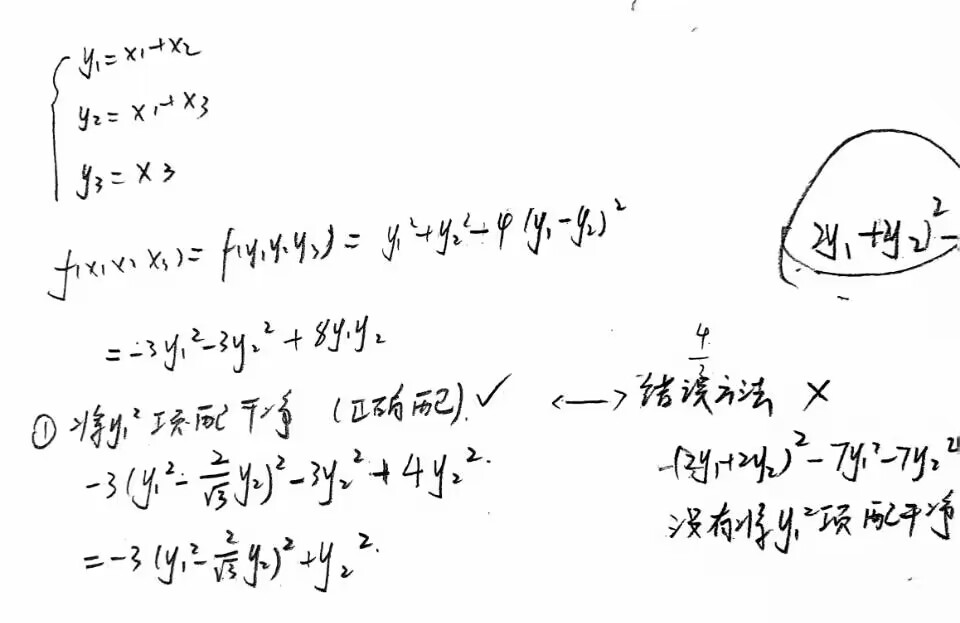 y₁=x₁+x₂
y₂=x₁+x₃
y₃=x₃
f(x₁x₂x₃)=f(y₁y₂y₃)=y₁²+y₂²-4(y₁-y₂)²
2y₁+2y₂)²-
=-3y₁²-3y₂²+8y₁y₂
4
①将y₁²项配干净(正确配)✓ <—>错误方法 ×
-3(y₁²-2/√3y₂)²-3y₂²+4y₂².
-(2y₁+2y₂)²-7y₁²-7y₂²
=-3(y₁²-2/√3y₂)²+y₂².
没有将y₁²项配干净